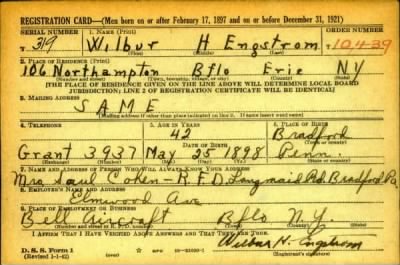 REGISTRATION CARD—(Men born on or after February 17, 1897 and on or before December 31, 1921)
SERIAL NUMBER 1. NAME (Print) ORDER NUMBER
T 319 Wilbur H Engstrom 10,439
2. PLACE OF RESIDENCE (Print)
106 Northampton Bflo Erie NY
(Number and street) (Town, township, village, or city) (County) (State)
[THE PLACE OF RESIDENCE GIVEN ON THE LINE ABOVE WILL DETERMINE LOCAL BOARD
JURISDICTION; LINE 2 OF REGISTRATION CERTIFICATE WILL BE IDENTICAL]
3. MAILING ADDRESS
SAME
[Mailing address if other than place indicated on line 2. If same insert word same]
4. TELEPHONE 5. AGE IN YEARS 6. PLACE OF BIRTH
42 Bradford
DATE OF BIRTH
Grant 3937 May 25 1898 Penn.
(Exchange) (Number) (Mo.) (Day) (Yr.) (State or country)
7. NAME AND ADDRESS OF PERSON WHO WILL ALWAYS KNOW YOUR ADDRESS
Mrs Saul Cohen - R.F.D. Rd Bradford Pa
8. EMPLOYER'S NAME AND ADDRESS
Elmwood Ave
9. PLACE OF EMPLOYMENT OR BUSINESS
Bell Aircraft Bflo N.Y.
(Number and street or R. F. D. number) (Town) (County) (State)
I AFFIRM THAT I HAVE VERIFIED ABOVE ANSWERS AND THAT THEY ARE TRUE.
D. S. S. Form 1
(Revised 1-1-42) Wilbur H. Engstrom